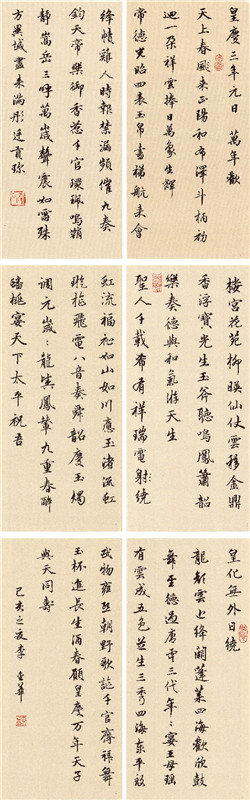 皇慶三年元日 萬年歡
天上春風來正陽和布澤斗柄初
迴一朵祥雲捧日萬象生輝
帝德光昭四表玉帛盡梯航來會
絳幘雞人時報禁漏頻催九奏
鈞天帝樂御香惹千官環珮鳴鞘
靜嵩岳三呼萬歲聲震如雷殊
方異域盡來滿彤廷貢珍
樓宮花苑柳暎仙仗雲移金鼎
香浮寶光生玉斧聽鳴鳳簫韶
樂奏德與和氣游天生
聖人千載希有祥瑞電繞
虹流福祉如山如川應玉渚流虹
璇樞飛電八音奏舜韶慶玉燭
調元歲:龍輿鳳輦九重春醉
蟠桃宴天下太平祝吾
皇化無外日繞
龍顏雲近絳闕蓬萊四海歡欣鼓
舞聖德過唐虞三代年:宴王母瑤
有雲成五色芝生三秀四海來平
民物雍熙朝野歌謠千官齊拜舞
玉杯進長生酒春願皇慶万年天子
與天同壽
己亥之夏李華